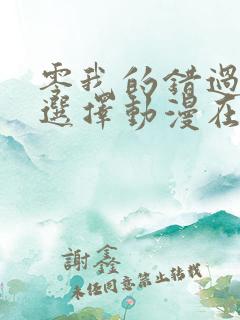 零我的錯過
選擇動漫在
謝鑫
未任同意禁止转载